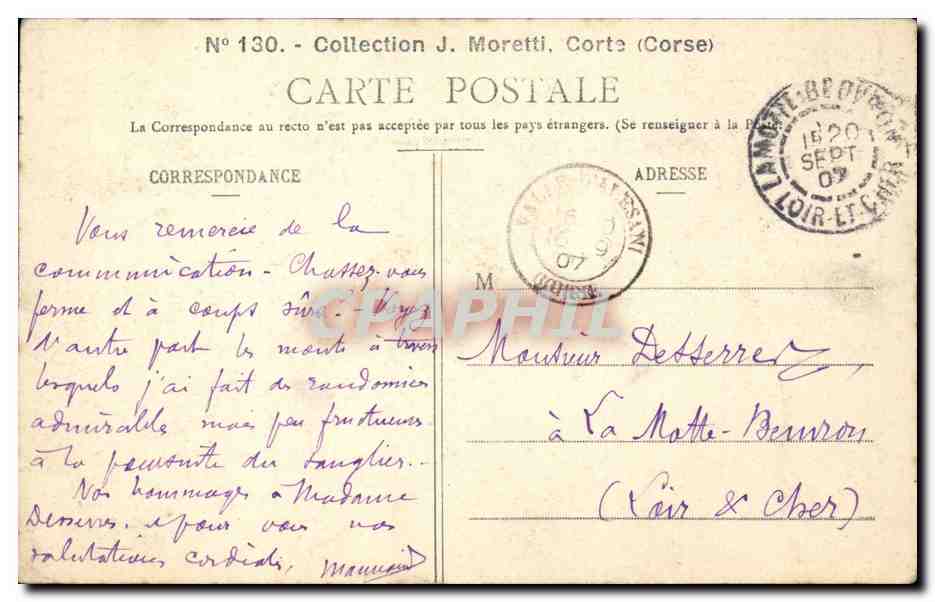 Nº 130. - Collection J. Moretti, Corte (Corse)
CARTE POSTALE
La Correspondance au recto n'est pas acceptée par tous les pays étrangers. (Se renseigner à la Poste.
CORRESPONDANCE
Vous remercie de la
communication - Chassez-vous
ferme et à coups sûrs! - Voyez
d'autre part les monts à travers
lesquels j'ai fait des randonnées
admirables mais peu fructueuses
à la poursuite du sanglier. -
Nos hommages à Madame
Desserres. et pour vous nos
salutations cordiales,
ADRESSE
M
Monsieur Desserrez
à La Motte-Beuvron
(Loir & Cher)
LAMOTTE-BEUVRON
20
SEPT
07
LOIR-ET-CHER
VALLE-D'ALESANI
07
CPAPHIL